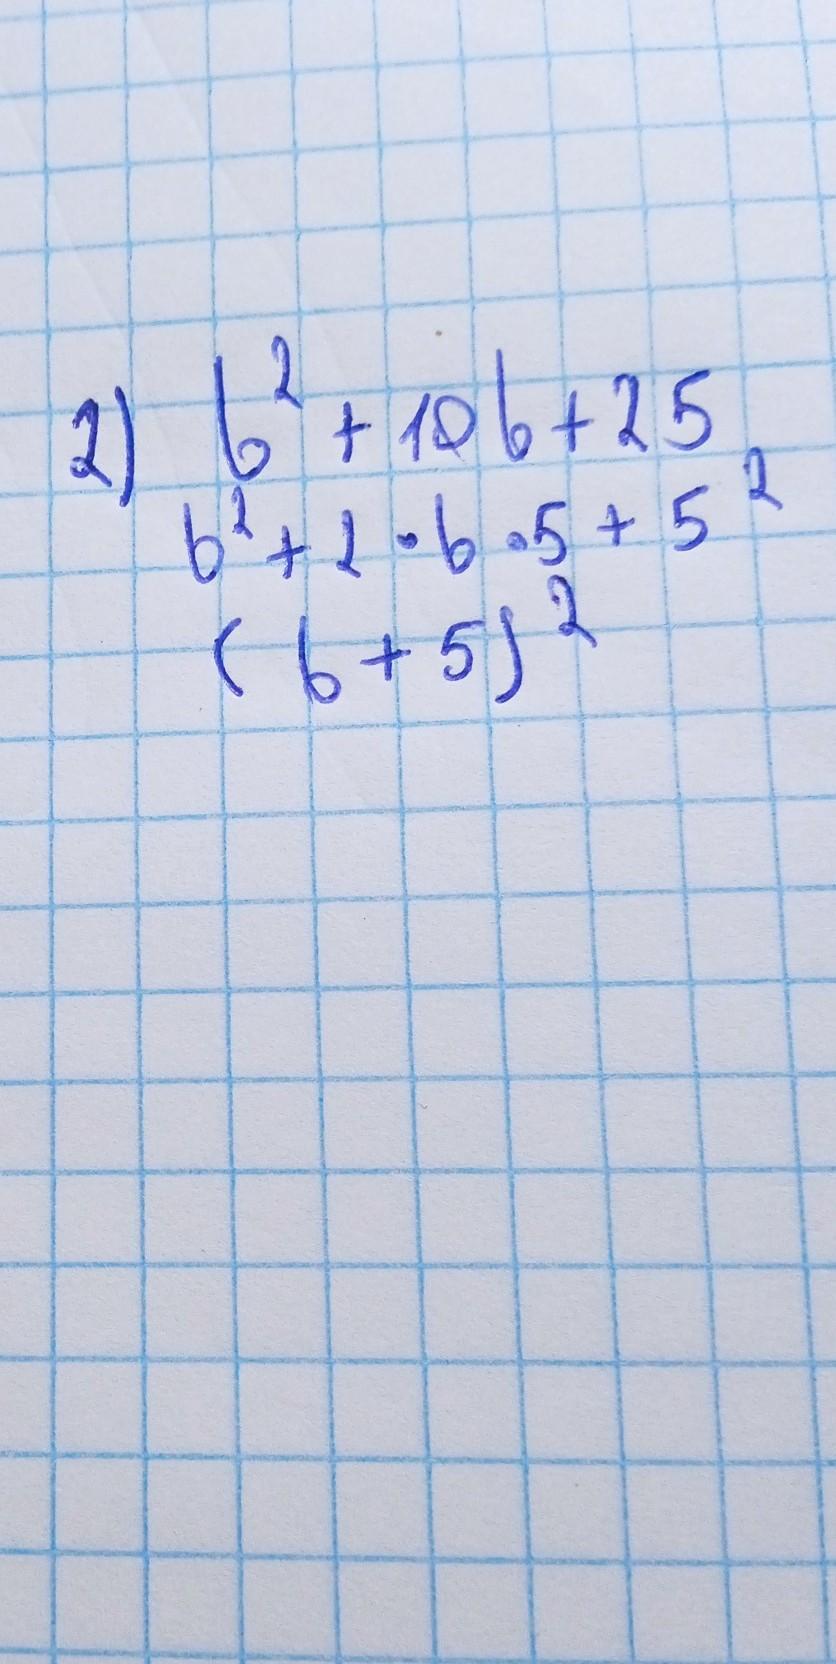 2) b² + 10b + 25
b² + 2 · b · 5 + 5²
(b + 5)²